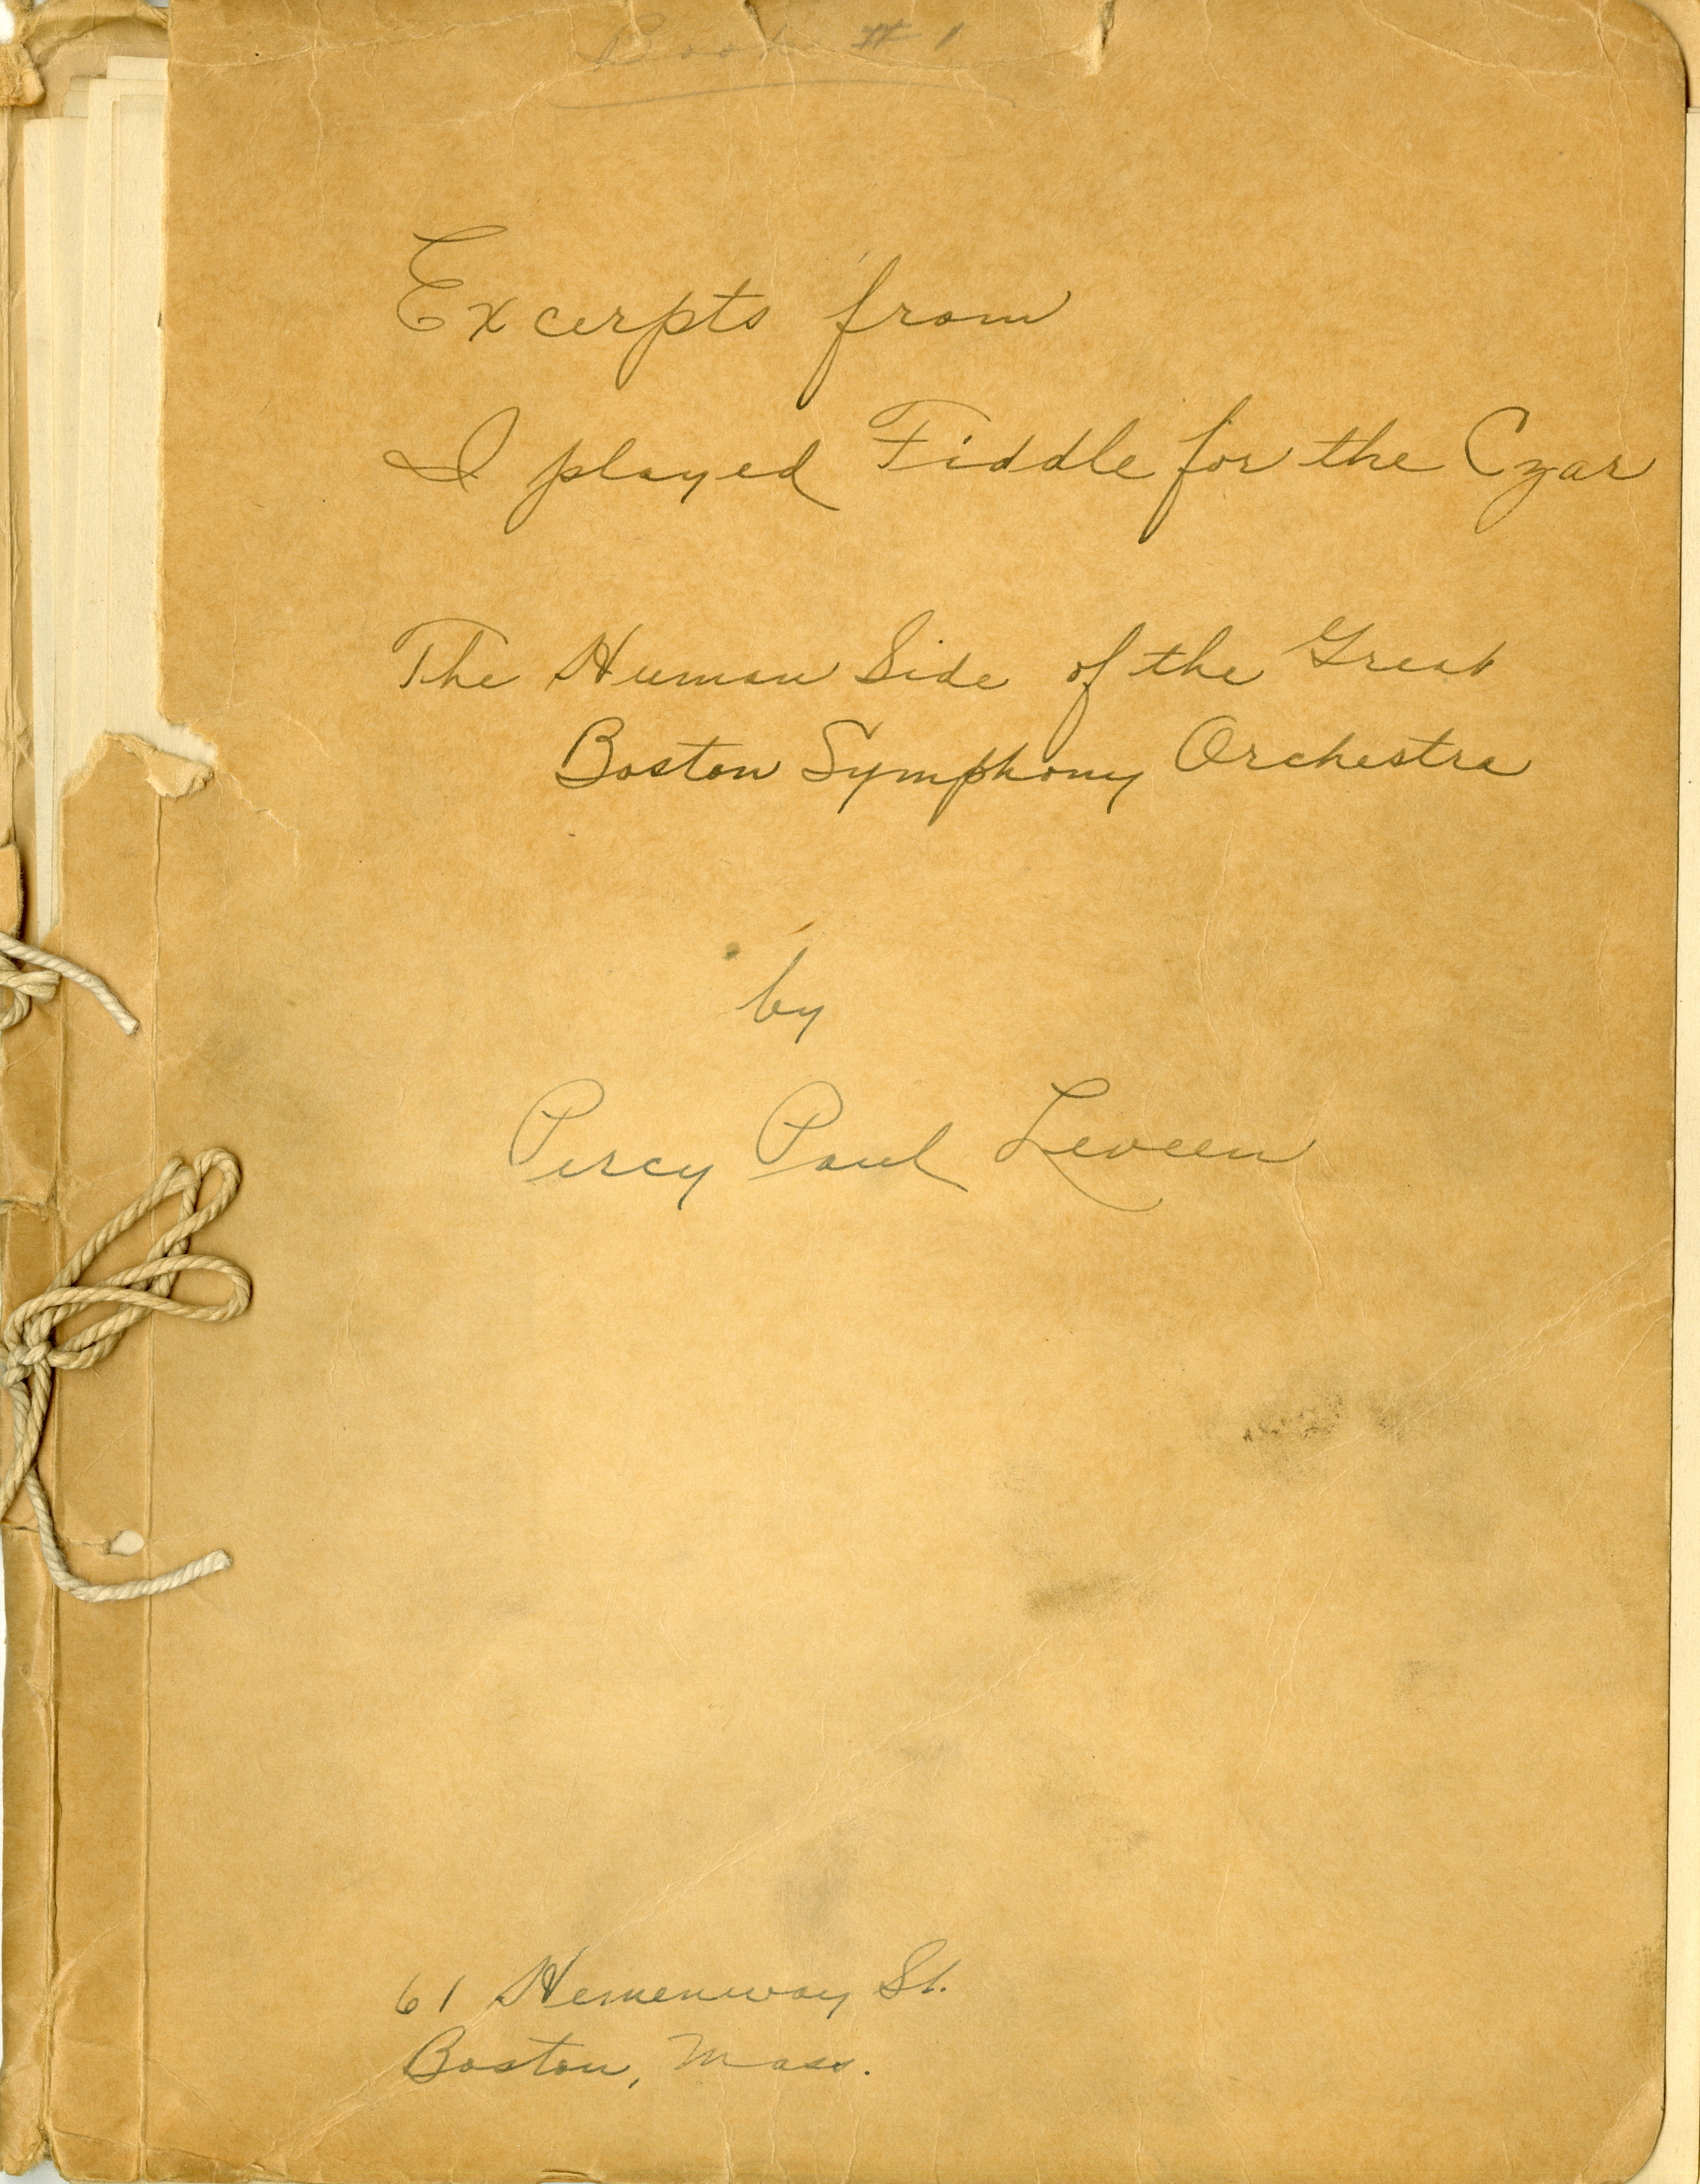 Book #1
Excerpts from
I played Fiddle for the Czar
The Human Side of the Great
Boston Symphony Orchestra
by
Percy Paul Leveen
61 Hemenway St.
Boston, Mass.